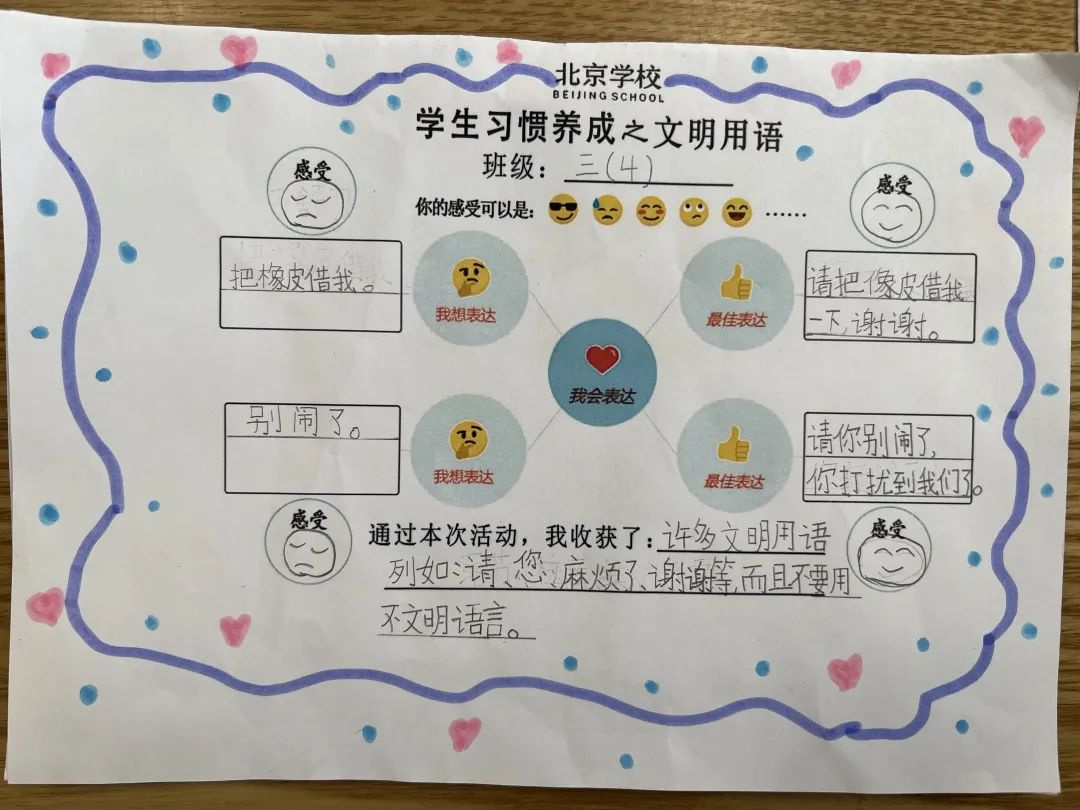 北京学校
BEIJING SCHOOL
学生习惯养成之文明用语
班级：三(4)
你的感受可以是：
……
感受
感受
把橡皮借我。
我想表达
最佳表达
请把像皮借我
一下,谢谢。
我会表达
别闹了。
我想表达
最佳表达
请你别闹了,
你打扰到我们了。
感受
感受
通过本次活动，我收获了：许多文明用语
列如：请、您、麻烦了、谢谢等,而且不要用
不文明语言。